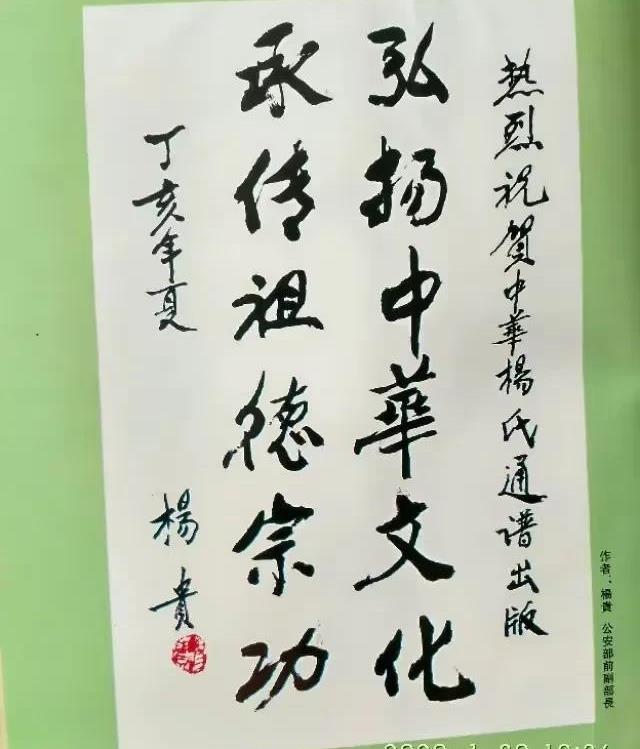 熱烈祝贺中華楊氏通谱出版
弘扬中華文化
承传祖德宗功
丁亥年夏
楊貴
作者：楊貴 公安部前副部長